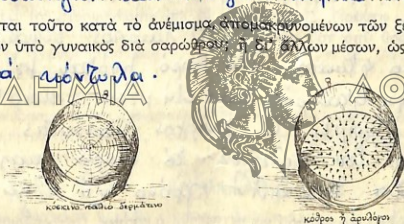 ται τοῦτο κατὰ τὸ ἀνέμισμα, ἀπομακρυνομένων τῶν ξ
ν ὑπὸ γυναικὸς διὰ σαρώθρου; ἢ δι' ἄλλων μέσων, ὡς
ΔΗΜΙΑ ΑΘ
κόσκινο παλιὸ δερμάτινο
κόθρος ἢ ἀρυλόγος